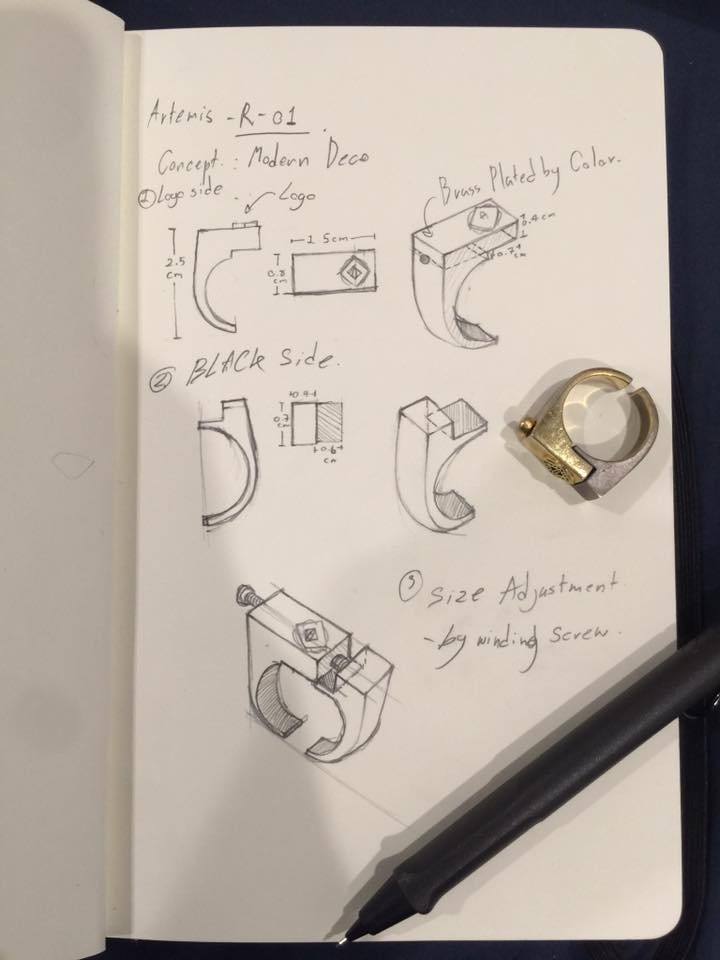 Artemis - R-01.
Concept : Modern Deco
① Logo side
Logo
Brass Plated by Color.
2.5
cm
1.5cm
0.8
cm
0.4 cm
0.7
② BLACK Side.
0.4
0.7
cm
0.6
cm
③ Size Adjustment
- by winding screw.